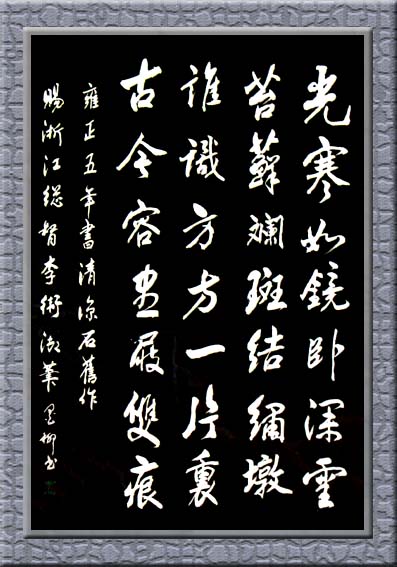 光寒如鏡卧深雲
苔蘚斕斑結繡墩
誰識方方一片裏
古今容盡屐雙痕
雍正五年書清涼石舊作
賜浙江總督李衛御筆 柳书